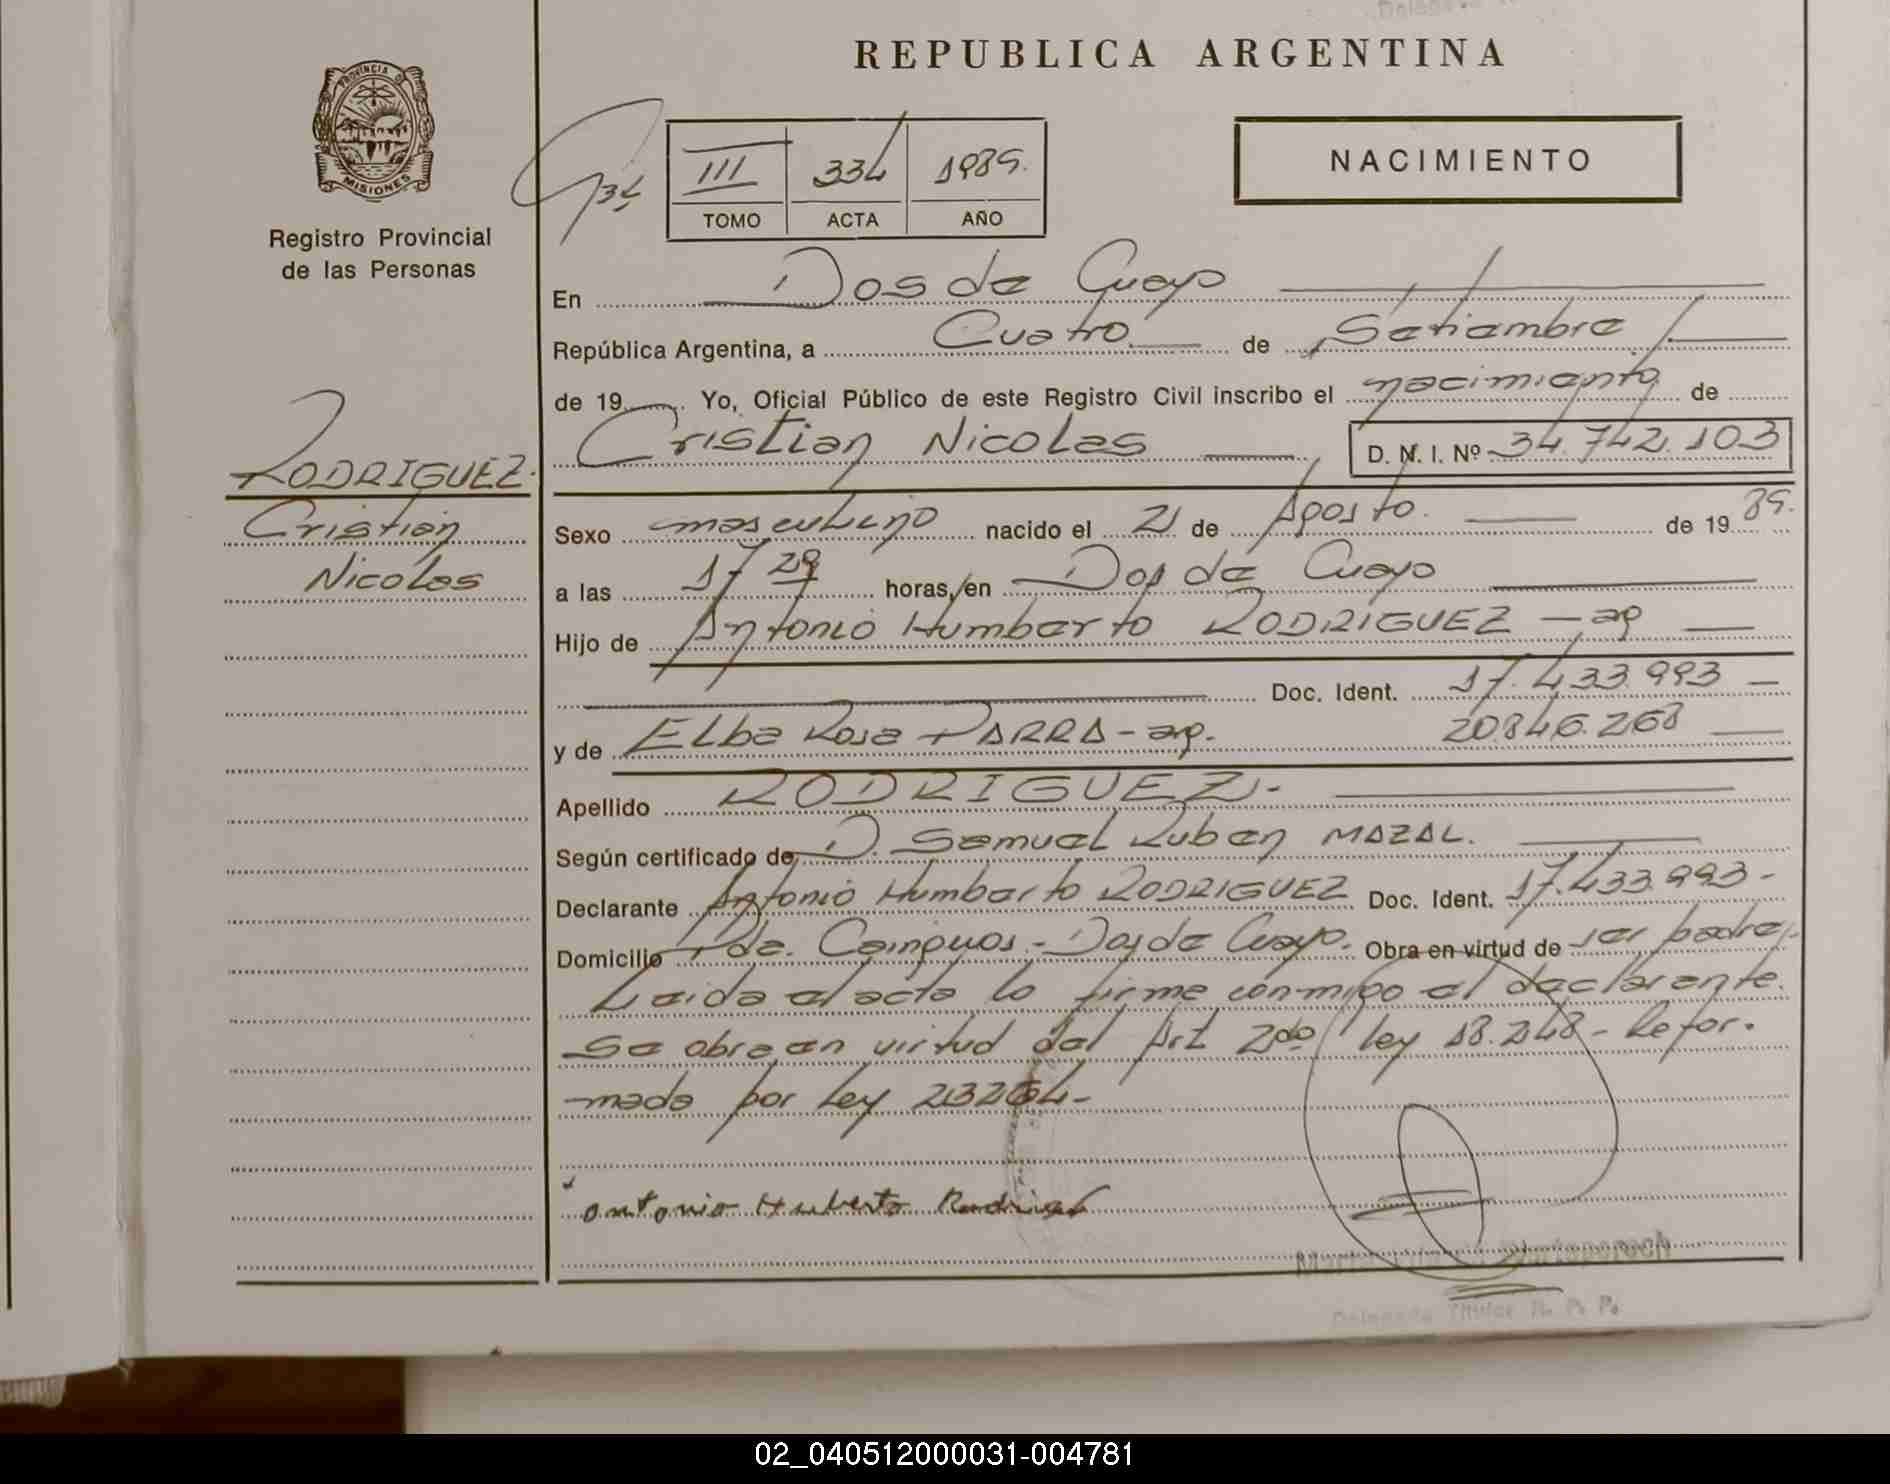 REPUBLICA ARGENTINA
PROVINCIA D
MISIONES
Registro Provincial
de las Personas
III 334 1989.
TOMO ACTA AÑO
NACIMIENTO
En Dos de Mayo
República Argentina, a Cuatro de Setiembre
de 19 Yo, Oficial Público de este Registro Civil inscribo el nacimiento de
Cristian Nicolas D. N. I. Nº 34.742.103
RODRIGUEZ.
Cristian
Nicolas
Sexo masculino nacido el 21 de Agosto. de 19 89.
a las 17 29 horas, en Dos de Mayo
Hijo de Antonio Humberto RODRIGUEZ - ap
Doc. Ident. 17.433.993
y de Elba Rosa PARRA - ap. 20.846.268
Apellido RODRIGUEZ.
Según certificado de D. Samuel Ruben MAZAL.
Declarante Antonio Humberto RODRIGUEZ Doc. Ident. 17.433.993-
Domicilio Pde. Cainguas - Dos de Mayo. Obra en virtud de ser padre.
Leida el acta lo firme conmigo el declarante.
Se obra en virtud del Art 2do ley 18.248 - Refor-
mada por ley 23264-
antonio Huberto Rodriguez
Delegado Titular R. P. P.
02_040512000031-004781